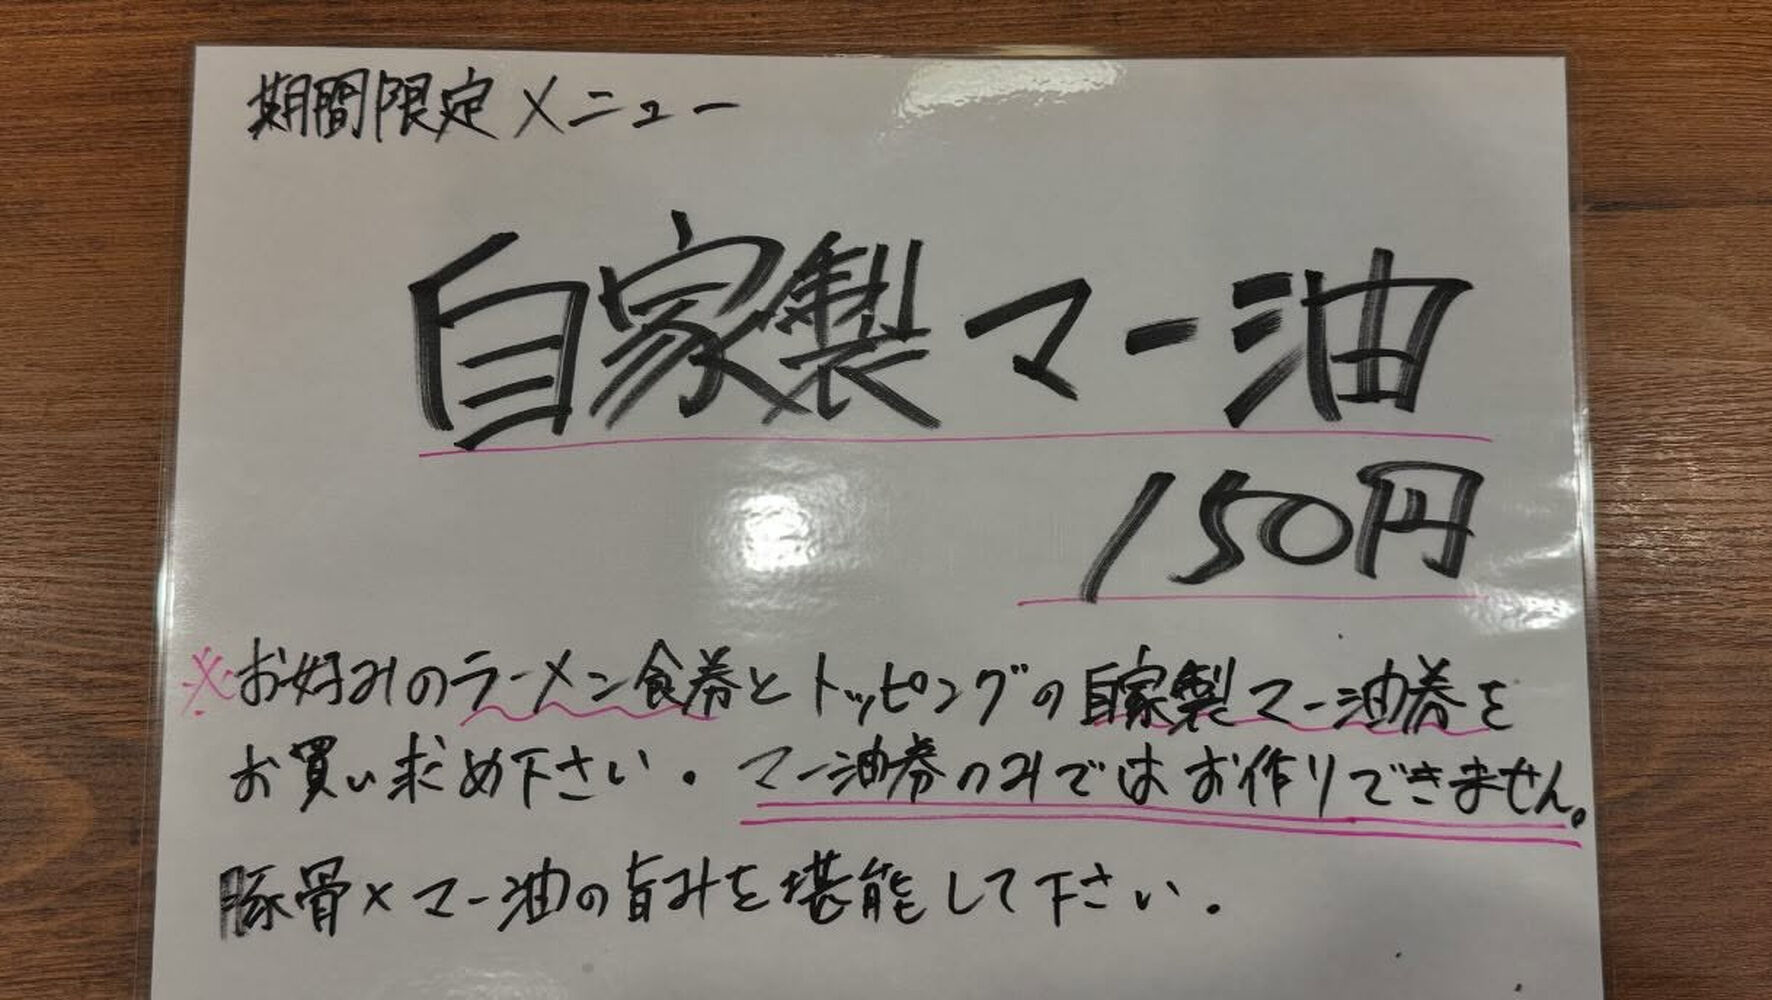 期間限定メニュー
自家製マー油
150円
※お好みのラーメン食券とトッピングの自家製マー油券を
お買い求め下さい。マー油券のみではお作りできません。
豚骨×マー油の旨みを堪能して下さい。